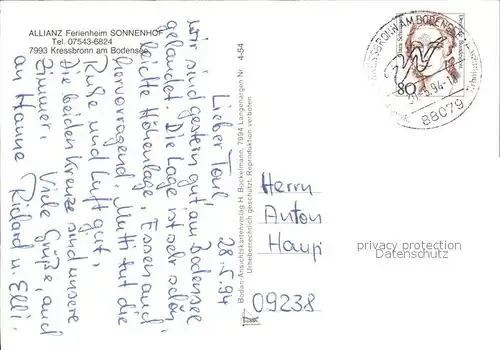 ALLIANZ Ferienheim SONNENHOF
Tel. 07543-6824
7993 Kressbronn am Bodensee
28.5.94
Lieber Toni,
wir sind gestern gut am Bodensee
gelandet. Die Lage ist sehr schön,
leichte Höhenlage. Essen auch
hervorragend. Mutti tut die
Ruhe und Luft gut.
Die beiden Kreuze sind unsere
Zimmer. Viele Grüße, auch
an Hanne Richard u. Elli.
Bodan-Ansichtskartenverlag H. Bockelmann, 7994 Langenargen Nr. 4-54
Urheberrechtlich geschützt. Reproduktion verboten
KRESSBRONN AM BODENSEE
5.94
88079
80
Herrn
Anton
Haupt
09238
privacy protection
Datenschutz